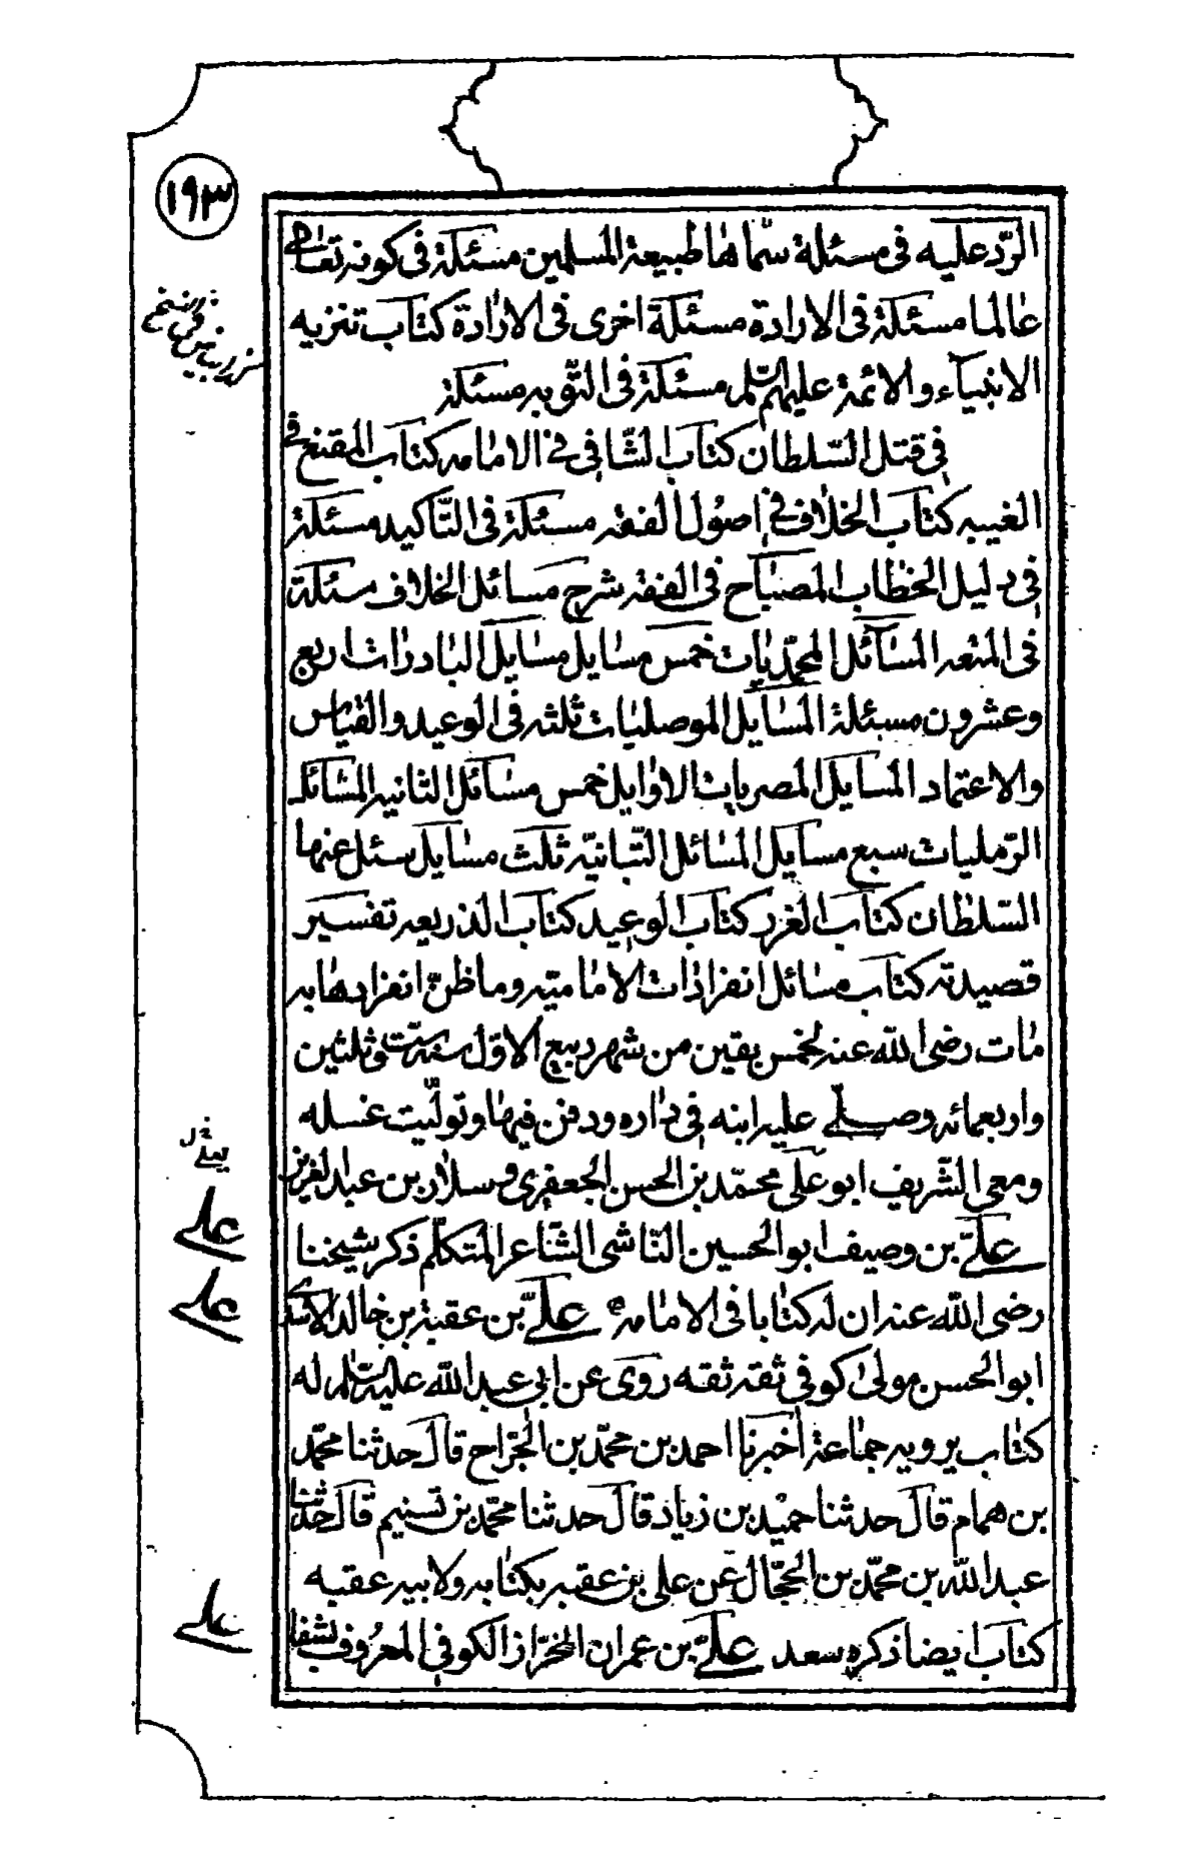 ١٩٣
الرّد عليه فى مسئلة سمّاها طبيعة المسلمين مسئلة فى كونه تعالى
عالما مسئلة فى الارادة مسئلة اخرى فى الارادة كتاب تنزيه
الانبيآء و الائمة عليهم السلم مسئلة فى التّوبه مسئلة
فى قتل السّلطان كتاب الشّافى فى الامامه كتاب المقنع فى
الغيبه كتاب الخلاف فى اصول الفقه مسئلة فى التّاكيد مسئلة
فى دليل الخطاب المصباح فى الفقه شرح مسائل الخلاف مسئلة
فى المتعه المسآئل المحمّديات خمس مسايل مسايل البادرات اربع
وعشرون مسئلة المسايل الموصليات ثلثه فى الوعيد والقياس
والاعتماد المسايل المصريات الاوايل خمس مسائل الثانيه المسائل
الرّمليات سبع مسايل المسائل التّبانيّه ثلث مسايل سئل عنها
السّلطان كتاب الغرر كتاب الوعيد كتاب الذريعه تفسير
قصيدته كتاب مسائل انفرادات الاماميّه وما ظنّ انفرادها به
مات رضى الله عنه لخمس بقين من شهر ربيع الاوّل سنه ستّ وثلثين
واربعمائه وصلّى عليه ابنه فى داره ودفن فيها وتولّيت غسله
ومعى الشّريف ابو على محمّد بن الحسن الجعفرى وسلار بن عبد العزيز
علىّ بن وصيف ابو الحسين النّاشى الشّاعر المتكلّم ذكر شيخنا
رضى الله عنه ان له كتابا فى الامامه علىّ بن عقبة بن خالد الاسدى
ابو الحسن مولى كوفى ثقه ثقه روى عن ابى عبد الله عليه السلم له
كتاب يرويه جماعة اخبرنا احمد بن محمّد بن الجرّاح قال حدثنا محمّد
بن همام قال حدثنا حميد بن زياد قال حدثنا محمّد بن تسنيم قال حدّثنا
عبد الله بن محمّد بن الحجّال عن على بن عقبه بكتابه ولابيه عقبه
كتاب ايضا ذكره سعد علىّ بن عمران الخرّاز الكوفى المعروف بشفا
على
على
على